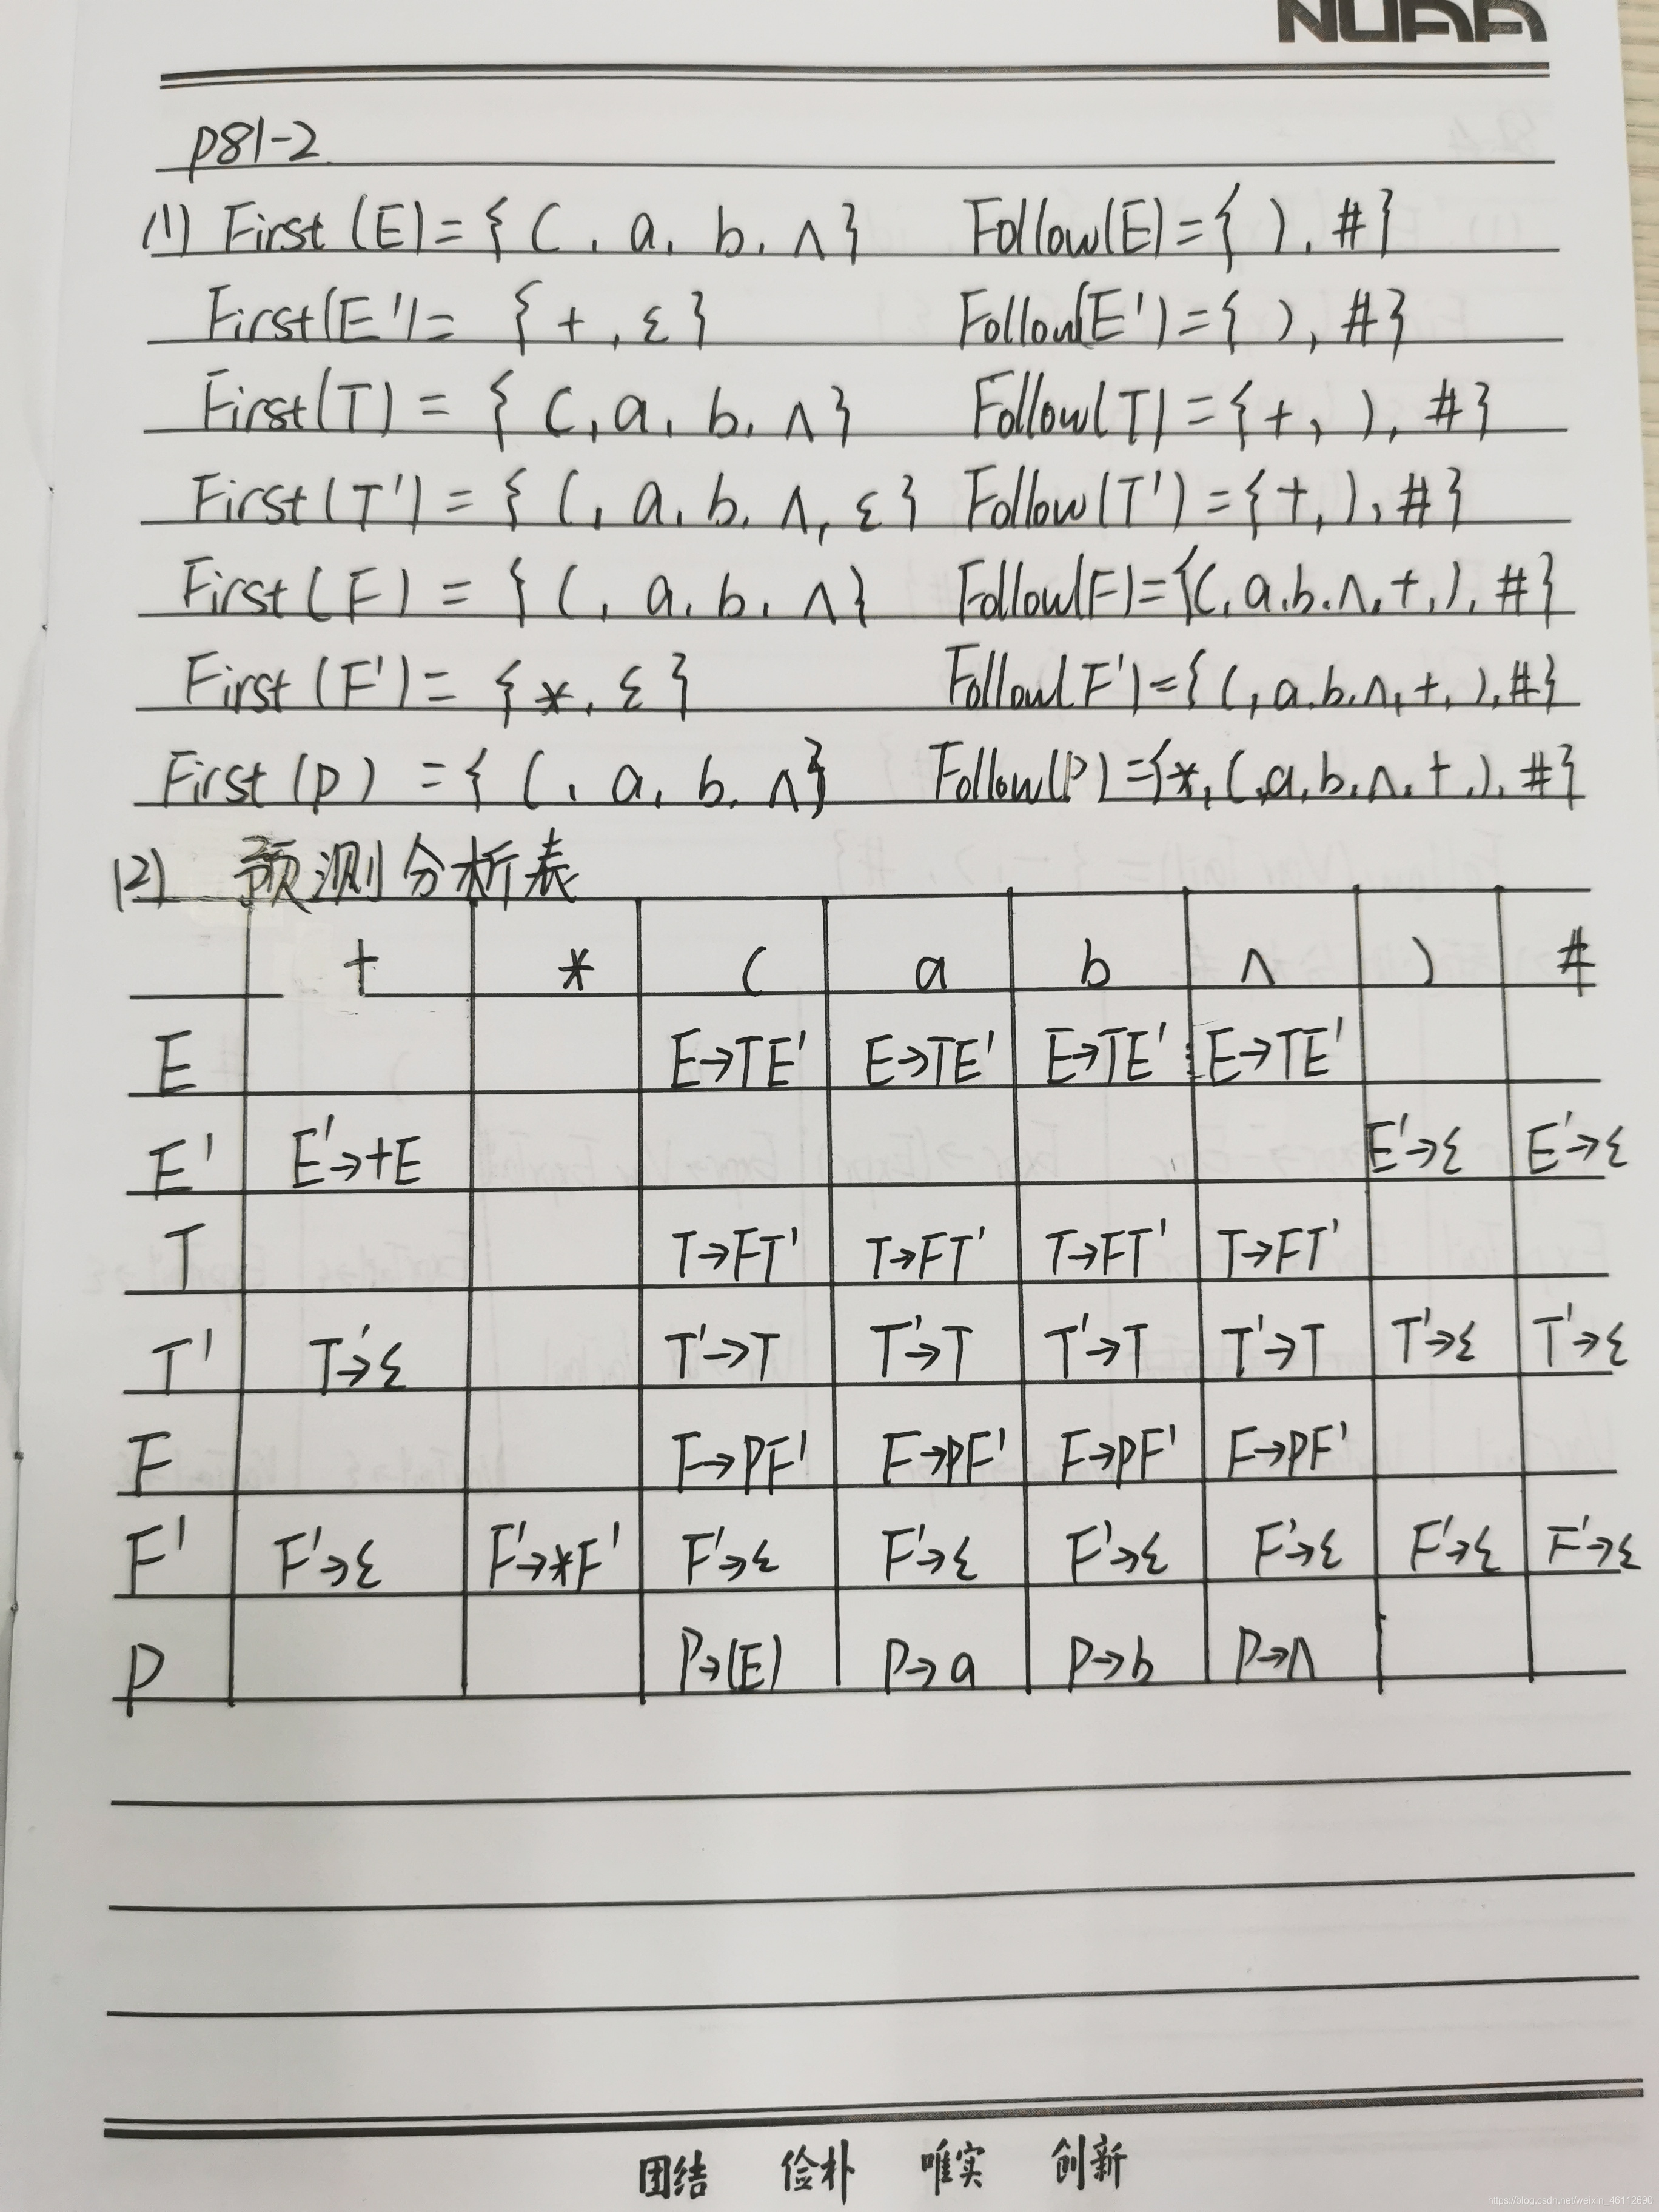 NUAA
P81-2
(1) First(E)={(, a, b, ∧} Follow(E)={ ), #}
First(E')= {+, ε} Follow(E')={ ), #}
First(T)={(, a, b, ∧} Follow(T)={+, ), #}
First(T')={(, a, b, ∧, ε} Follow(T')={+, ), #}
First(F)={(, a, b, ∧} Follow(F)={(, a, b, ∧, +, ), #}
First(F')={*, ε} Follow(F')={(, a, b, ∧, +, ), #}
First(P)={(, a, b, ∧} Follow(P)={*, (, a, b, ∧, +, ), #}
(2) 预测分析表
+ * ( a b ∧ ) #
E E→TE' E→TE' E→TE' E→TE'
E' E'→+E E'→ε E'→ε
T T→FT' T→FT' T→FT' T→FT'
T' T'→ε T'→T T'→T T'→T T'→T T'→ε T'→ε
F F→PF' F→PF' F→PF' F→PF'
F' F'→ε F'→*F' F'→ε F'→ε F'→ε F'→ε F'→ε F'→ε
P P→(E) P→a P→b P→∧
团结 俭朴 唯实 创新
https://blog.csdn.net/weixin_46112690